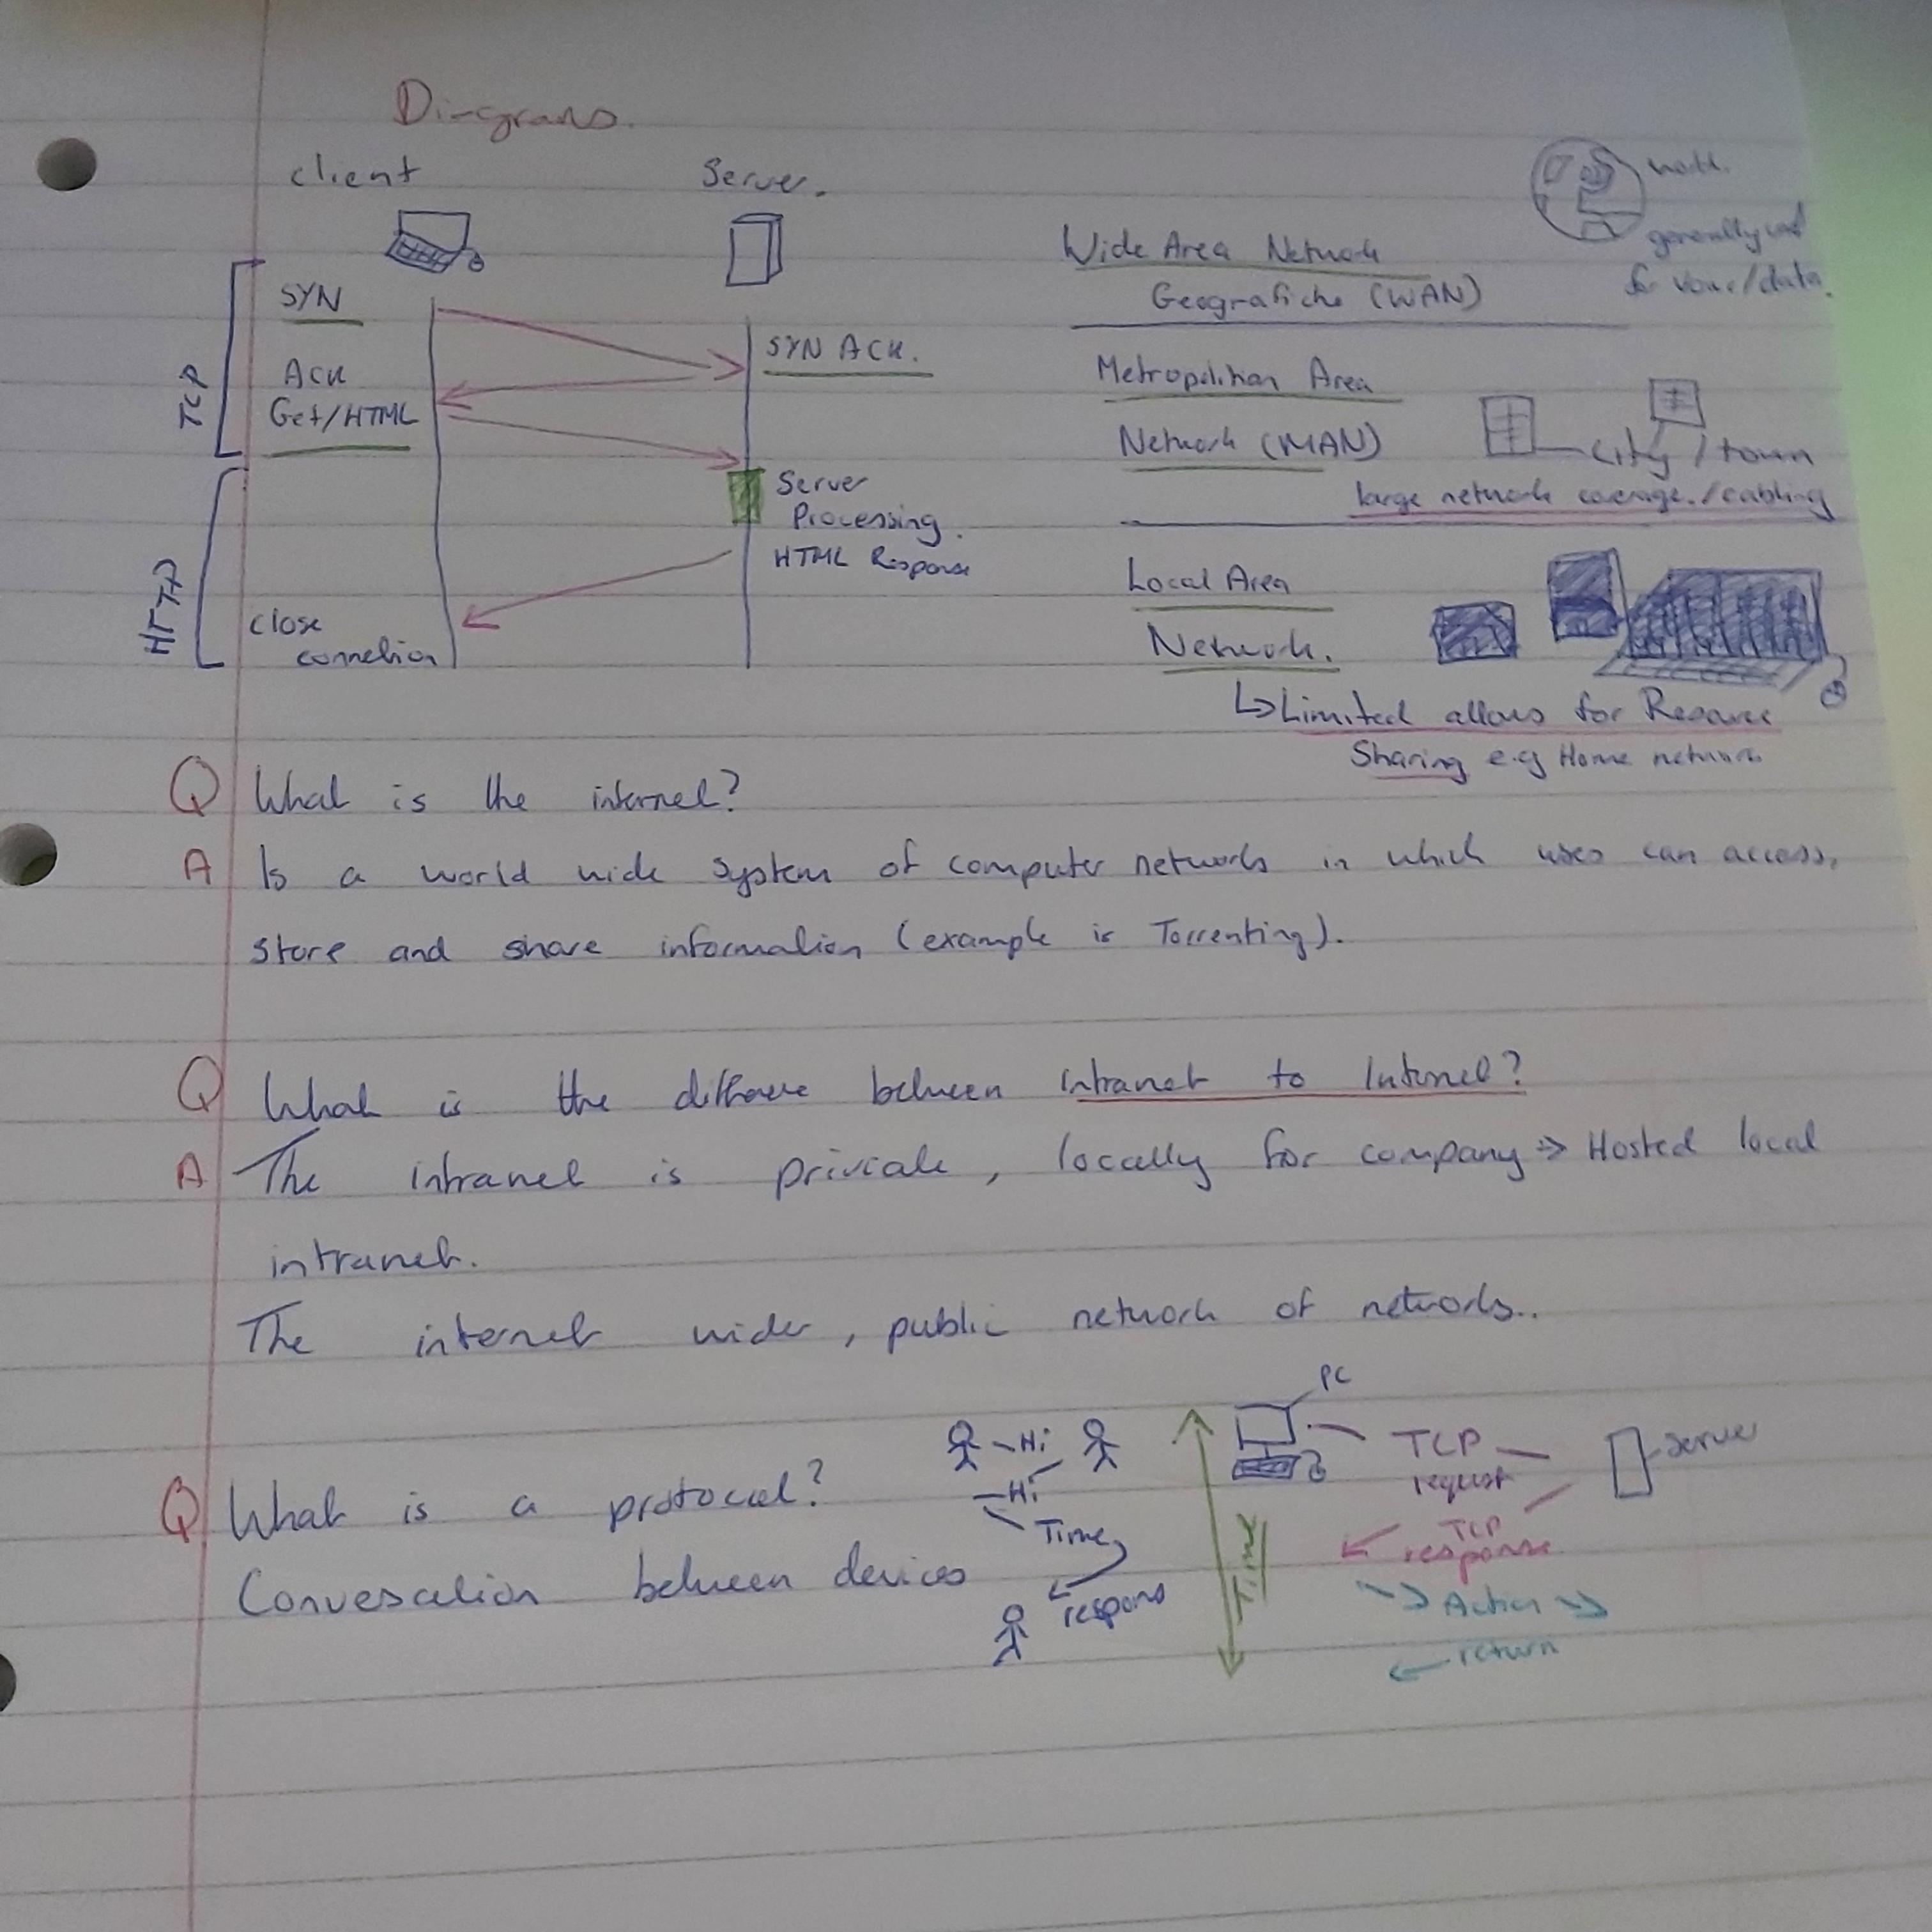 Diagrams.
client
Server.
TCP
SYN
SYN ACK.
Ack
Get/HTML
HTTP
Server
Processing.
HTML Response
close
connection
world.
generally used
for voice/data.
Wide Area Network
Geografiche (WAN)
Metropolitan Area
Network (MAN)
city / town
large network coverage./cabling
Local Area
Network.
↳Limited allows for Resource
Sharing e.g Home network
Q What is the internet?
A Is a world wide system of computer networks in which uses can access,
store and share information (example is Torrenting).
Q What is the difference between intranet to Internet?
A The intranet is private, locally for company => Hosted local
intranet.
The internet wider, public network of networks..
Q What is a protocol?
Conversation between devices
Hi
Hi
Time
respons
Time
PC
TCP
request
server
TCP
response
Action
return